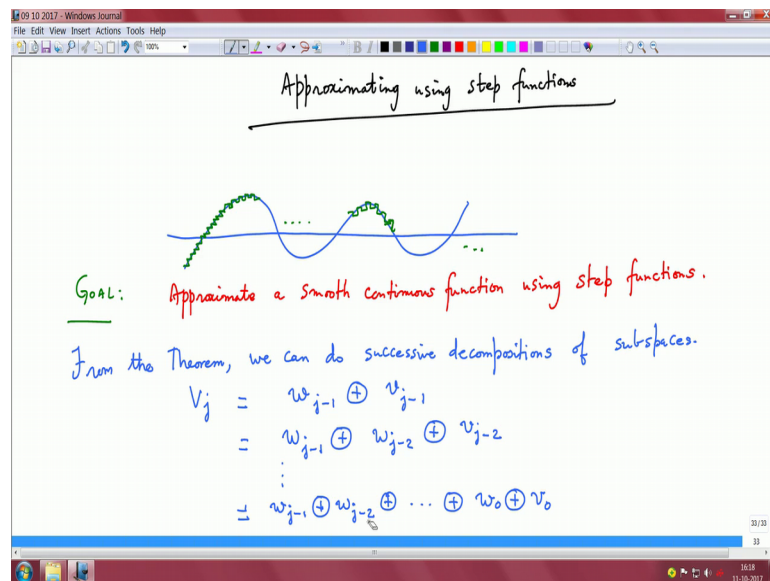 09 10 2017 - Windows Journal
File Edit View Insert Actions Tools Help
100%
Approximating using step functions
....
...
GOAL: Approximate a smooth continuous function using step functions.
From the Theorem, we can do successive decompositions of subspaces.
V_j = w_{j-1} ⊕ v_{j-1}
= w_{j-1} ⊕ w_{j-2} ⊕ v_{j-2}
⋮
= w_{j-1} ⊕ w_{j-2} ⊕ ... ⊕ w_0 ⊕ v_0
33/33
33
16:18
11-10-2017